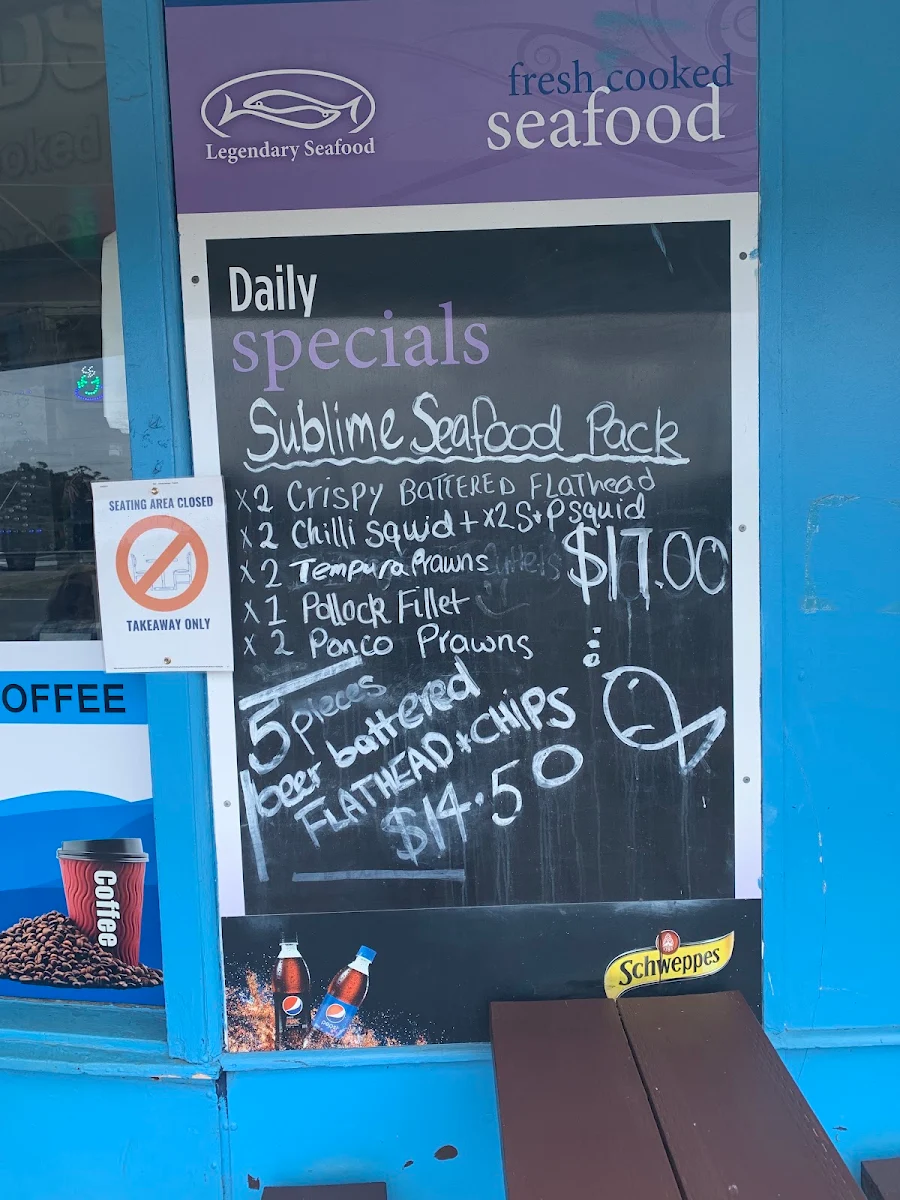 fresh cooked
seafood
Legendary Seafood
Daily
specials
Sublime Seafood Pack
x2 Crispy BATTERED FLATHead
x2 Chilli Squid + x2 S+P Squid
x2 Tempura Prawns
$17.00
x1 Pollock Fillet
x2 Panco Prawns
5 pieces
beer battered
FLATHEAD + CHIPS
$14.50
SEATING AREA CLOSED
TAKEAWAY ONLY
OFFEE
Coffee
Schweppes
pepsi